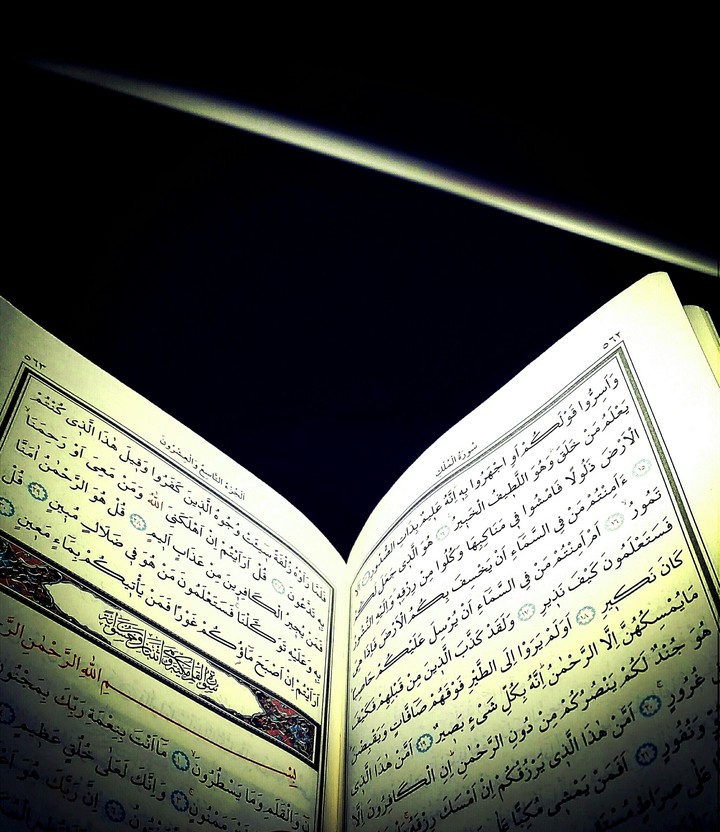 ٥٦٢
سُورَةُ المُلْكِ
وَاَسِرُّوا قَوْلَكُمْ اَوِ اجْهَرُوا بِهِ اِنَّهُ عَلِيمٌ بِذَاتِ الصُّدُورِ ١٣ اَلَا
يَعْلَمُ مَنْ خَلَقَ وَهُوَ اللَّطِيفُ الْخَبِيرُ ١٤ هُوَ الَّذِى جَعَلَ لَكُمُ
الْاَرْضَ ذَلُولًا فَامْشُوا فِى مَنَاكِبِهَا وَكُلُوا مِنْ رِزْقِهِ وَاِلَيْهِ النُّشُورُ
١٥ ءَاَمِنْتُمْ مَنْ فِى السَّمَاءِ اَنْ يَخْسِفَ بِكُمُ الْاَرْضَ فَاِذَا هِىَ
تَمُورُ ١٦ اَمْ اَمِنْتُمْ مَنْ فِى السَّمَاءِ اَنْ يُرْسِلَ عَلَيْكُمْ حَاصِبًا
فَسَتَعْلَمُونَ كَيْفَ نَذِيرِ ١٧ وَلَقَدْ كَذَّبَ الَّذِينَ مِنْ قَبْلِهِمْ فَكَيْفَ
كَانَ نَكِيرِ ١٨ اَوَلَمْ يَرَوْا اِلَى الطَّيْرِ فَوْقَهُمْ صَافَّاتٍ وَيَقْبِضْنَ
مَا يُمْسِكُهُنَّ اِلَّا الرَّحْمٰنُ اِنَّهُ بِكُلِّ شَىْءٍ بَصِيرٌ ١٩ اَمَّنْ هٰذَا الَّذِى
هُوَ جُنْدٌ لَكُمْ يَنْصُرُكُمْ مِنْ دُونِ الرَّحْمٰنِ اِنِ الْكَافِرُونَ اِلَّا
غُرُورٍ ٢٠ اَمَّنْ هٰذَا الَّذِى يَرْزُقُكُمْ اِنْ اَمْسَكَ رِزْقَهُ
وَنُفُورٍ ٢١ اَفَمَنْ يَمْشِى مُكِبًّا
عَلَى صِرَاطٍ
٥٦٣
الْجُزْءُ التَّاسِعُ وَالْعِشْرُونَ
فَلَمَّا رَاَوْهُ زُلْفَةً سِيئَتْ وُجُوهُ الَّذِينَ كَفَرُوا وَقِيلَ هٰذَا الَّذِى كُنْتُمْ
بِهِ تَدَّعُونَ ٢٧ قُلْ اَرَاَيْتُمْ اِنْ اَهْلَكَنِىَ اللّٰهُ وَمَنْ مَعِىَ اَوْ رَحِمَنَا
فَمَنْ يُجِيرُ الْكَافِرِينَ مِنْ عَذَابٍ اَلِيمٍ ٢٨ قُلْ هُوَ الرَّحْمٰنُ اٰمَنَّا
بِهِ وَعَلَيْهِ تَوَكَّلْنَا فَسَتَعْلَمُونَ مَنْ هُوَ فِى ضَلَالٍ مُبِينٍ ٢٩ قُلْ
اَرَاَيْتُمْ اِنْ اَصْبَحَ مَاؤُكُمْ غَوْرًا فَمَنْ يَاْتِيكُمْ بِمَاءٍ مَعِينٍ ٣٠
بِسْمِ اللّٰهِ الرَّحْمٰنِ
نٓ وَالْقَلَمِ وَمَا يَسْطُرُونَ ١ مَا اَنْتَ بِنِعْمَةِ رَبِّكَ بِمَجْنُونٍ
مَمْنُونٍ ٣ وَاِنَّكَ لَعَلٰى خُلُقٍ عَظِيمٍ ٤
اِنَّ رَبَّكَ هُوَ